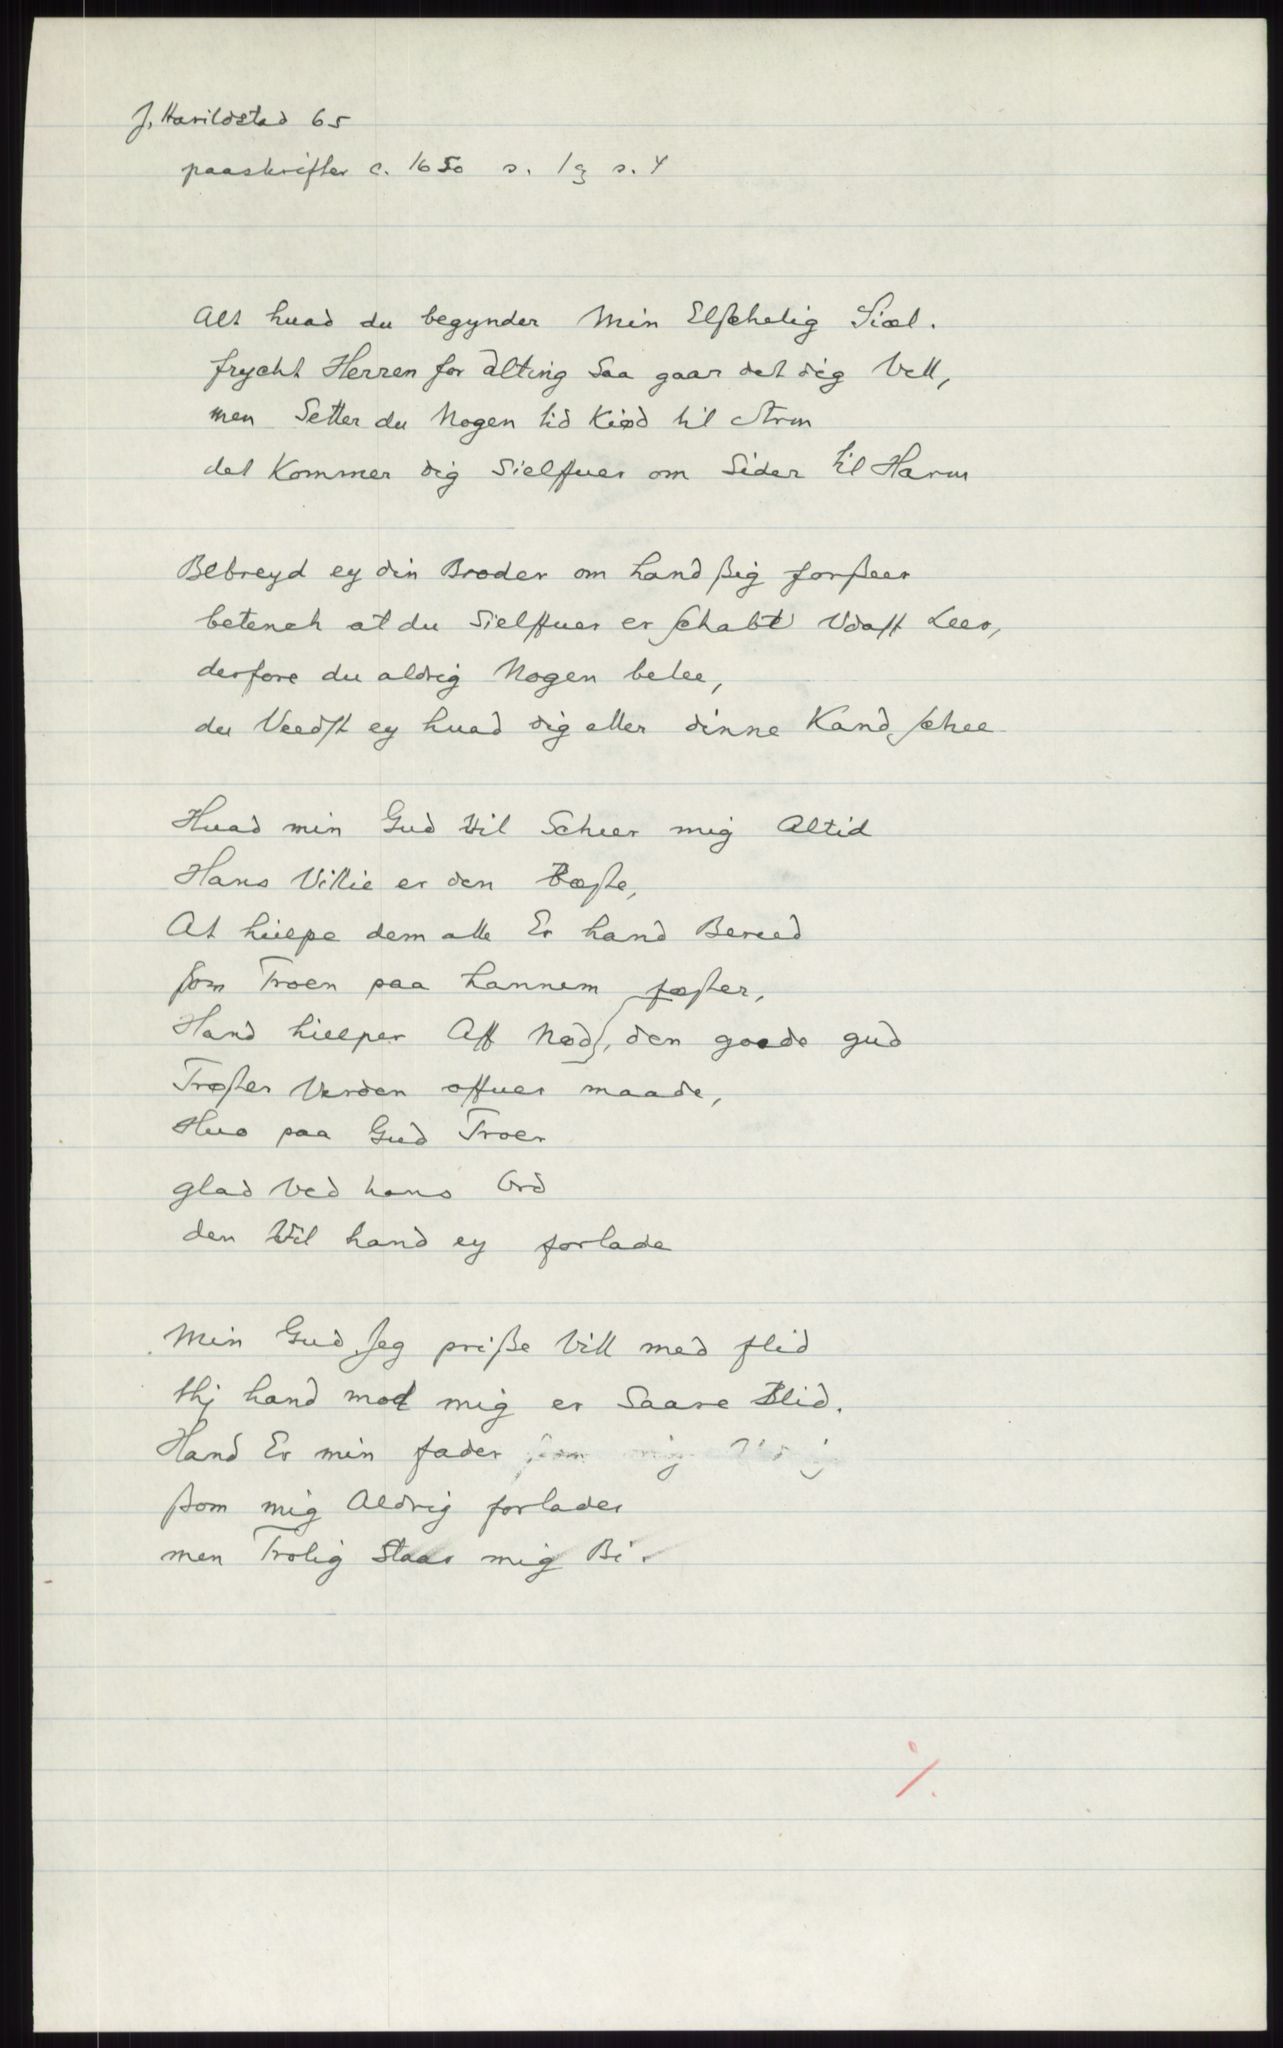 J. Harildstad 65
paaskrifter c. 1650 s. 1 g s. 4
Alt huad du begynder Min Elschelig Siæl.
frycht Herren for alting Saa gaar det dig Vell,
men Setter du Nogen tid Kiød til Arm
det Kommer dig Sielffuer om Sider til Harm
Bebreyd ey din Broder om hand ßig forßeer
betench at du Sielffuer er schabt Vdaff Leer,
derfore du aldrig Nogen belee,
du Veedst ey huad dig eller dinne Kand schee
Huad min Gud Vil Scheer mig Altid
Hans Villie er den Bæste,
At hielpe dem alle Er hand Bereed
som Troen paa hannem fæster,
Hand hielper Aff Nød, den goede gud
Trøster Verden offuer maade,
Huo paa Gud Troer
glad Ved hans Ord
den Vil hand ey forlade
Min Gud Jeg priße Vill med flid
thj hand mod mig er Saare Blid.
Hand Er min fader som mig
ßom mig Aldrig forlader
men Trolig Staar mig Bi.
%